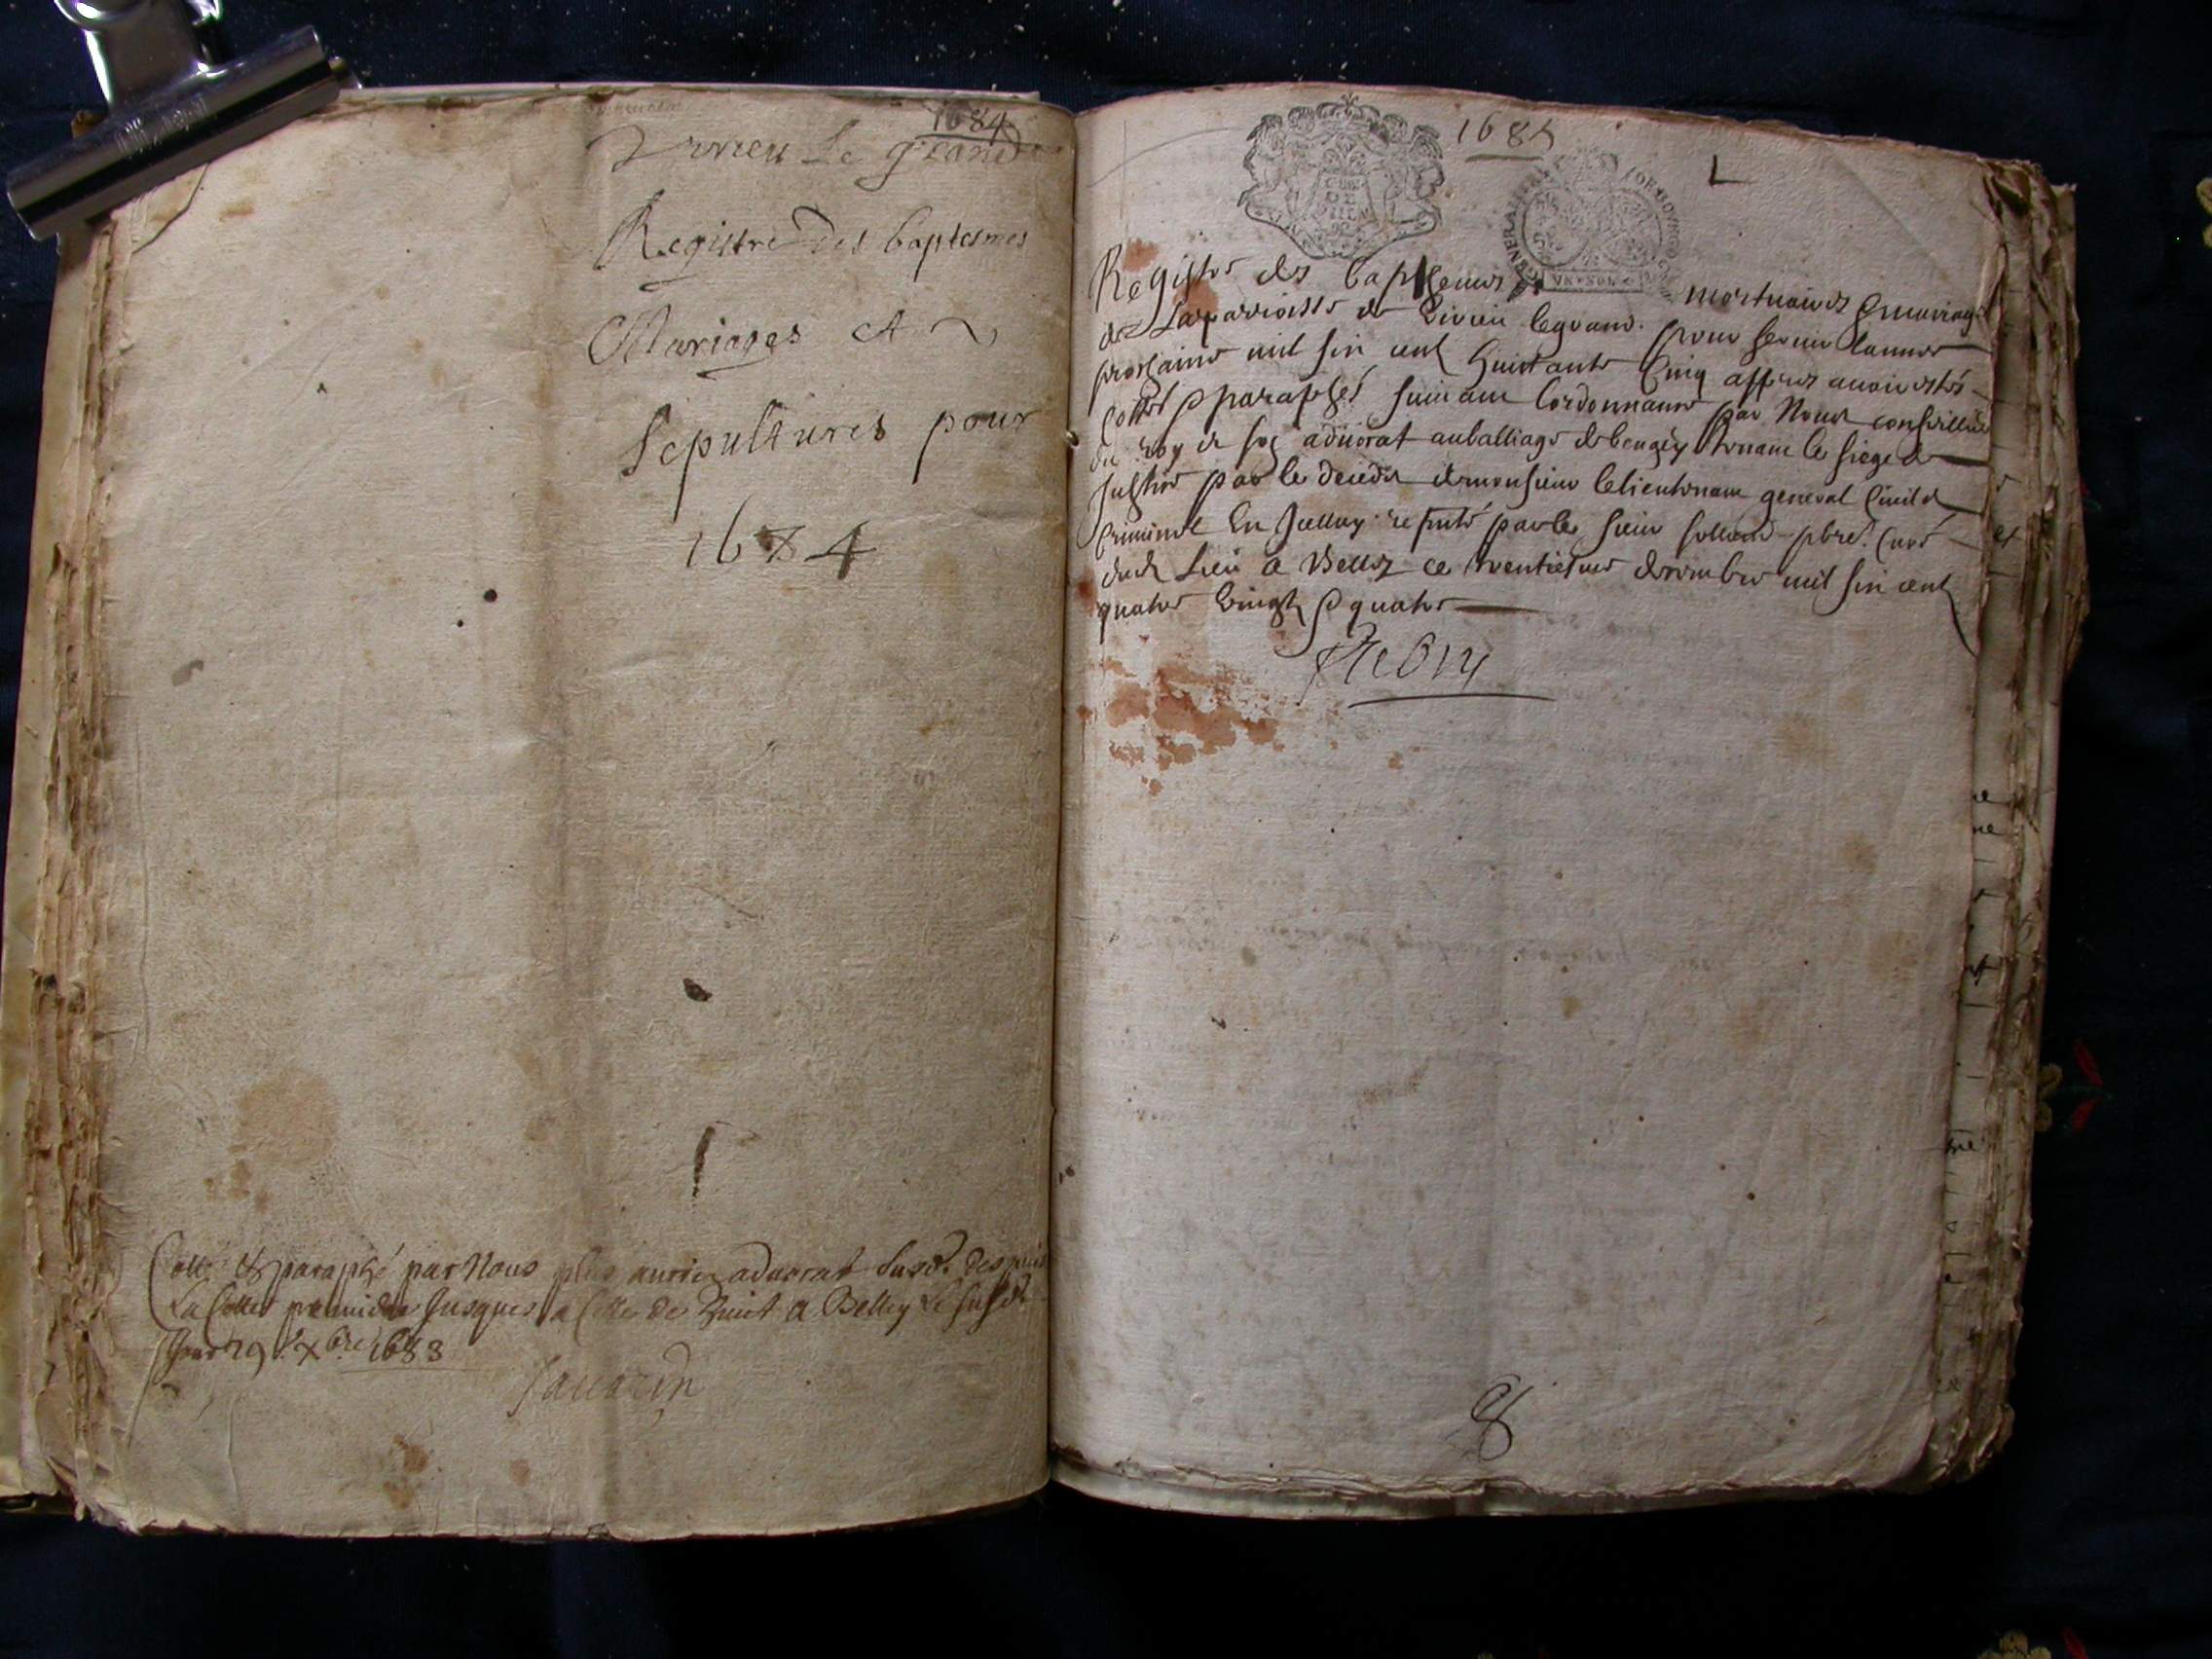 1684
Virieu Le grand
Registre des baptesmes
Mariages et
Sepultures pour
1684
Cotté & paraphé par Nous plus antien aduocat susd. despuis
La Cotte premiere Jusques a Celle de huict a Belley Le susd.
Jour 29 Xbre 1683
Sauarin
1685
1
GENERALITE DE BOVRGOGNE
Registre des baptesmes mortuaires & mariages
de La parroisse de Virieu legrand. pour seruir lannee
prochaine mil six cent huictante Cinq appres auoir estés
Cottés & paraphés suiuant lordonnance par Nous conseillier
du Roy et son aduocat au balliage de beugey tenant le siege de
Justice par le deceds de monsieur le lieutenant general Ciuil &
Criminel En Jcelluy pbre. Curé
dud. Lieu a Belley ce trentiesme mil six cent
quatre vingts & quatre
8